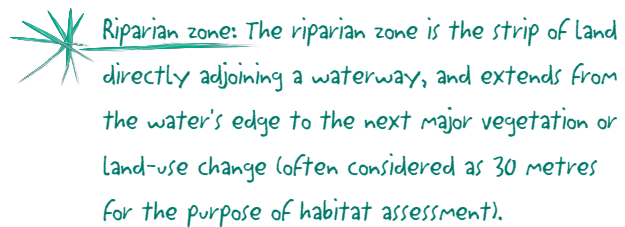 Riparian zone: The riparian zone is the strip of land
directly adjoining a waterway, and extends from
the water's edge to the next major vegetation or
land-use change (often considered as 30 metres
for the purpose of habitat assessment).